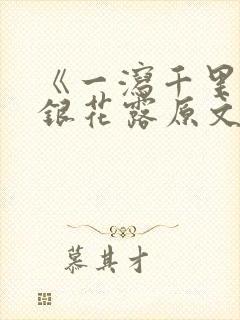 《一泻千里
银花露原文
慕其才